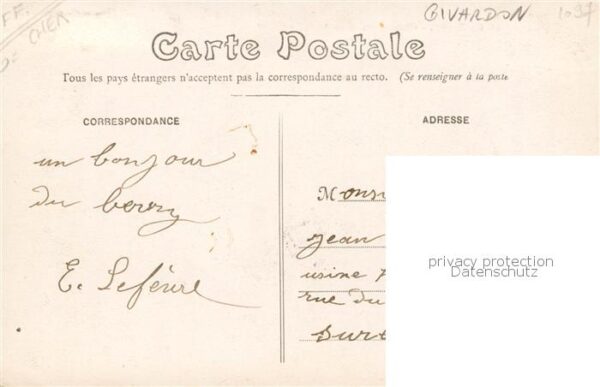 FF.
CHER
GIVARDON
1097
Carte Postale
Tous les pays étrangers n'acceptent pas la correspondance au recto. (Se renseigner à la poste
CORRESPONDANCE
ADRESSE
un bonjour
du berry
E. Lefèvre
Monsi
jean
usine
rue du
Sure
privacy protection
Datenschutz